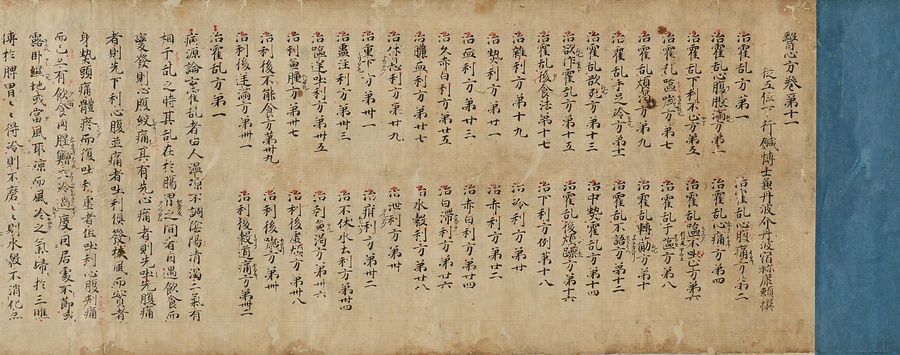 醫心方卷第十一
從五位下行鍼博士兼丹波介丹波宿祢康頼撰
治霍乱方第一 治霍乱心腹痛方第二
治霍乱心腹脹滿方第三 治霍乱心痛方第四
治霍乱下利不止方第五 治霍乱嘔吐不止方第六
治霍乱嘔噦方第七 治霍乱干嘔方第八
治霍乱煩渇方第九 治霍乱轉筋方第十
治霍乱手足冷方第十一 治霍乱不語方第十二
治霍乱欲死方第十三 治中熱霍乱方第十四
治欲作霍乱方第十五 治霍乱後煩躁方第十六
治霍乱後食法第十七 治下利方例第十八
治雜利方第十九 治冷利方第廿
治熱利方第廿一 治赤利方第廿二
治血利方第廿三 治赤白利方第廿四
治久赤白利方第廿五 治白滯利方第廿六
治膿血利方第廿七 治水穀利方第廿八
治休息利方第廿九 治泄利方第卅
治重下方第卅一 治疳利方第卅二
治蠱注利方第卅三 治不伏水土利方第卅四
治嘔逆吐利方第卅五 治利兼渇方第卅六
治利兼腫方第卅七 治利後虚煩方第卅八
治利後不能食方第卅九 治利後噦方第卌
治利後逆滿方第卌一 治利後穀道痛方第卌二
治霍乱方第一
病源論云霍乱者由人温凉不調陰陽清濁二氣有
相干乱之時其乱在於腸胃之間者因遇飲食而
變發則心腹絞痛其有先心痛者則先吐先腹痛
者則先下利心腹並痛者吐利俱發挾風而實者
身熱頭痛體疼而復吐利虚者但吐利心腹刾痛
而已亦有飲食肉腥膾冷過度因居處不節或
露卧濕地或當風取凉而風冷之氣歸於三焦
傳於脾胃々得冷則不磨々々則水穀不消化亦